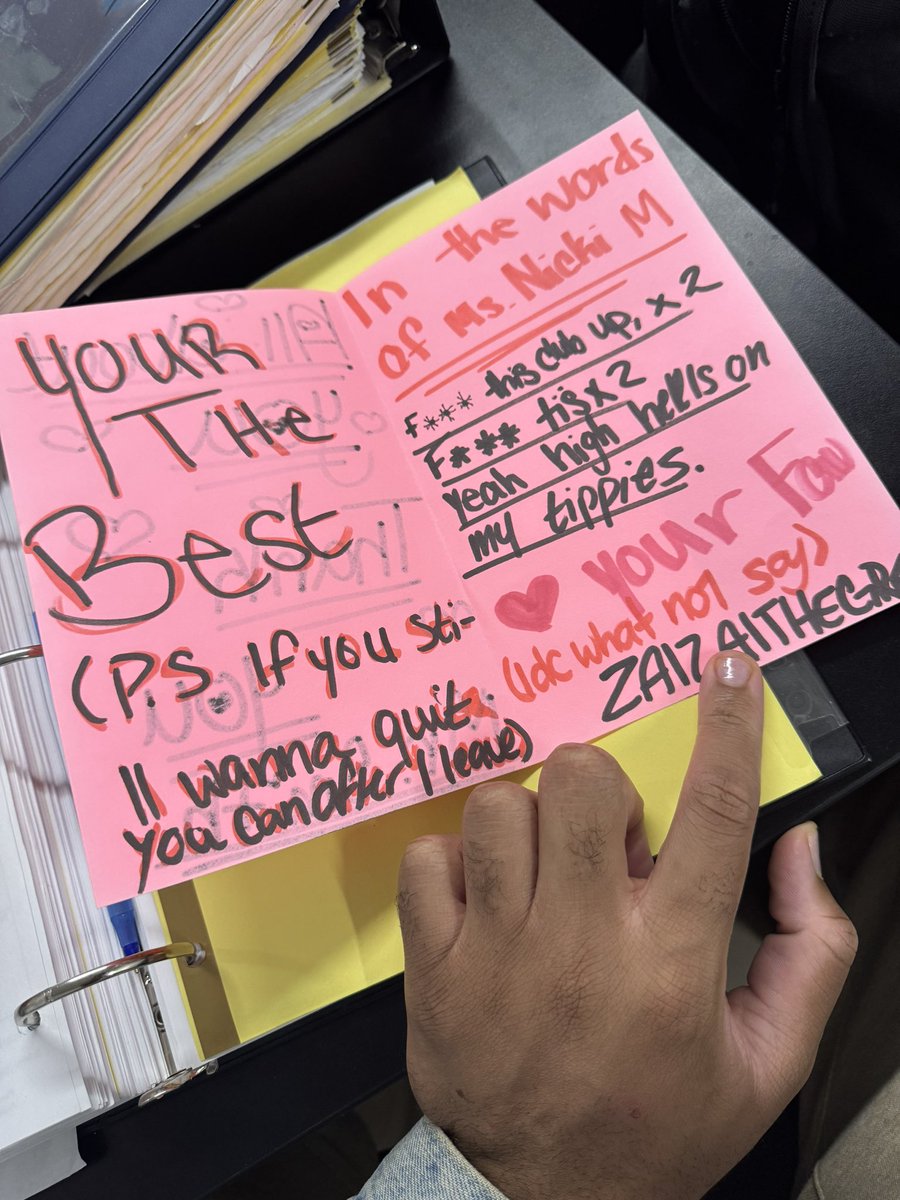 YOUR
THe
Best
(P.S. If you sti-
ll wanna quit
you can after I leave)
In the words
of Ms. Nicki M
F*** this club up, x2
F*** tis x2
yeah high hells on
my tippies.
your Fav
(Idc what not say)
ZAIZAITHEGRE